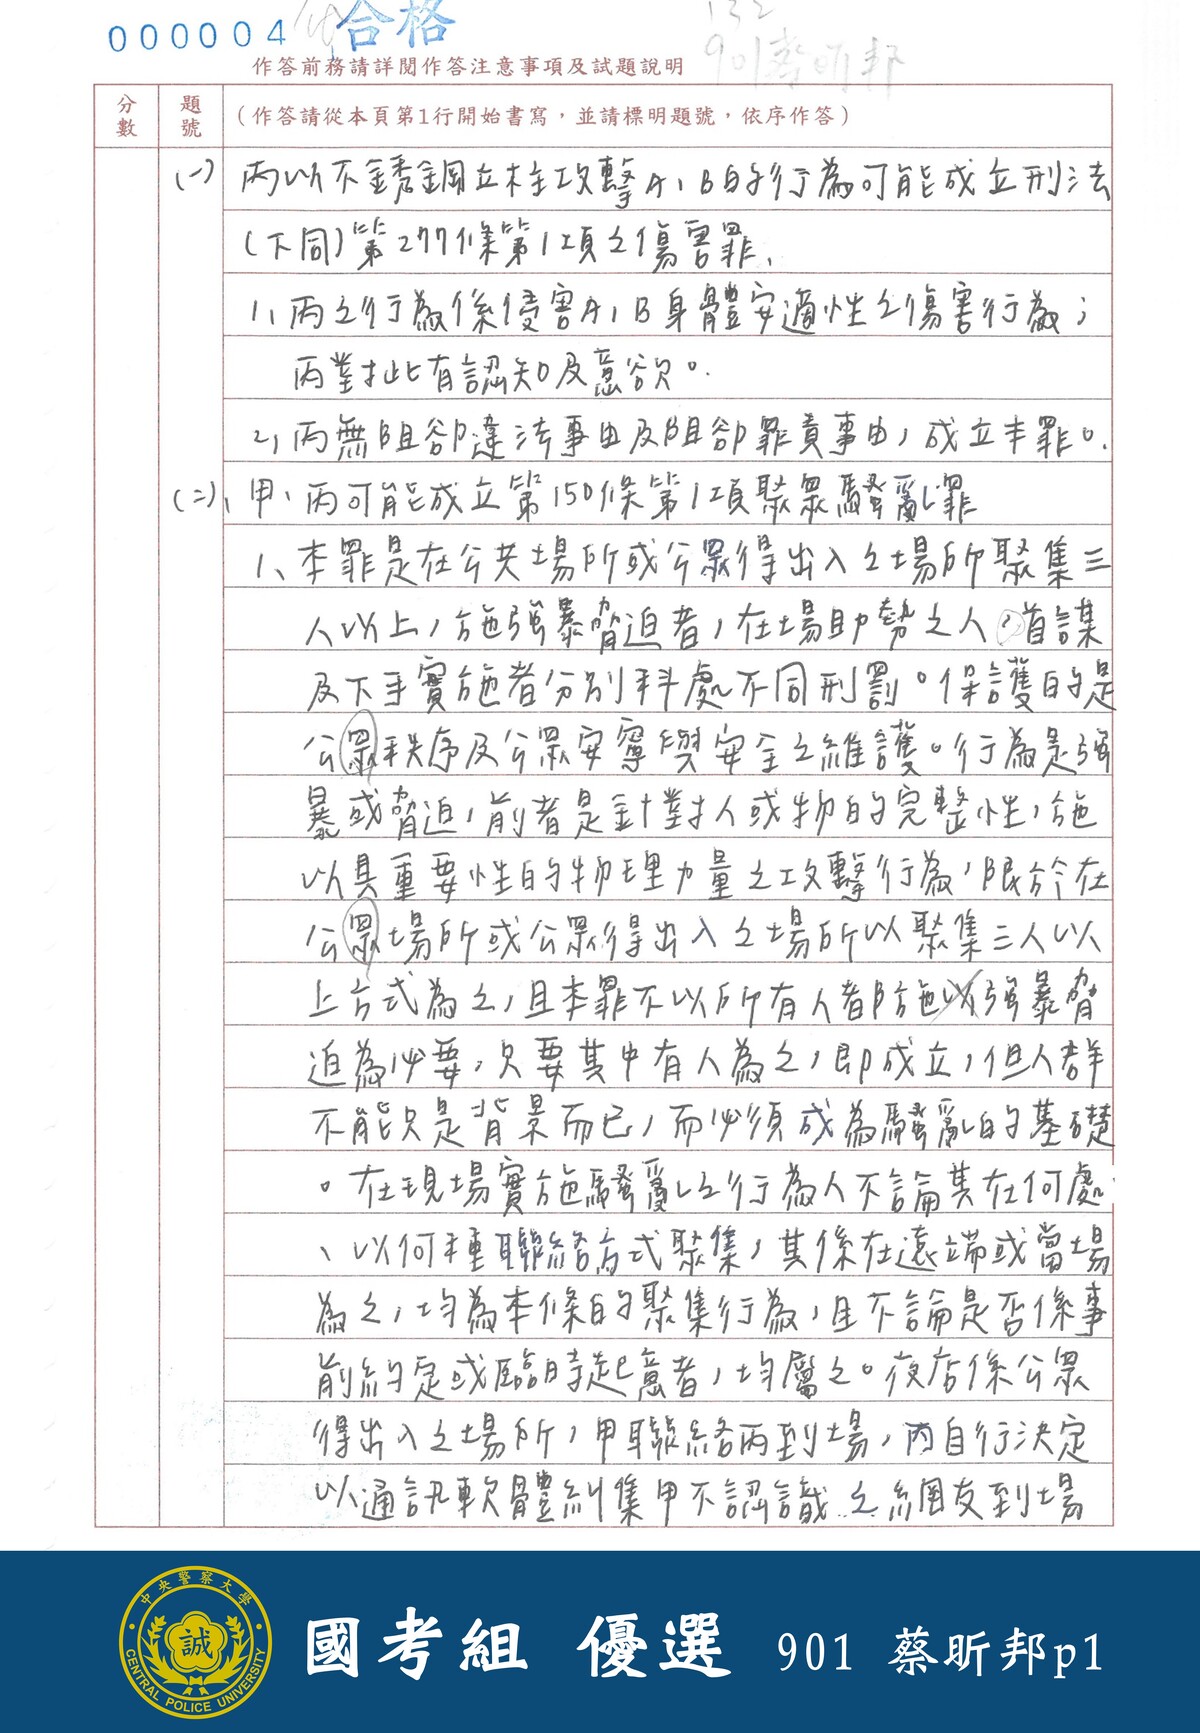 000004 合格
132
901蔡昕邦
作答前務請詳閱作答注意事項及試題說明
分數 題號 (作答請從本頁第1行開始書寫，並請標明題號，依序作答)
(一) 丙以不銹鋼立柱攻擊A、B的行為可能成立刑法
(下同)第277條第1項之傷害罪、
1、丙之行為係侵害A、B身體安適性之傷害行為；
丙對此有認知及意欲。
2、丙無阻卻違法事由及阻卻罪責事由，成立本罪。
(二)、甲、丙可能成立第150條第1項聚眾騷亂罪
1、本罪是在公共場所或公眾得出入之場所聚集三
人以上，施強暴脅迫者，在場助勢之人、首謀
及下手實施者分別科處不同刑罰。保護的是
公眾秩序及公眾安寧與安全之維護。行為是強
暴或脅迫，前者是針對人或物的完整性，施
以具重要性的物理力量之攻擊行為，限於在
公眾場所或公眾得出入之場所以聚集三人以
上方式為之，且本罪不以所有人都施強暴脅
迫為必要，只要其中有人為之，即成立，但人群
不能只是背景而已，而必須成為騷亂的基礎
。在現場實施騷亂之行為人不論其在何處
、以何種聯絡方式聚集，其係在遠端或當場
為之，均為本條的聚集行為，且不論是否係事
前約定或臨時起意者，均屬之。夜店係公眾
得出入之場所，甲聯絡丙到場，丙自行決定
以通訊軟體糾集甲不認識之網友到場
中央警察大學
誠
CENTRAL POLICE UNIVERSITY
國考組 優選 901 蔡昕邦p1